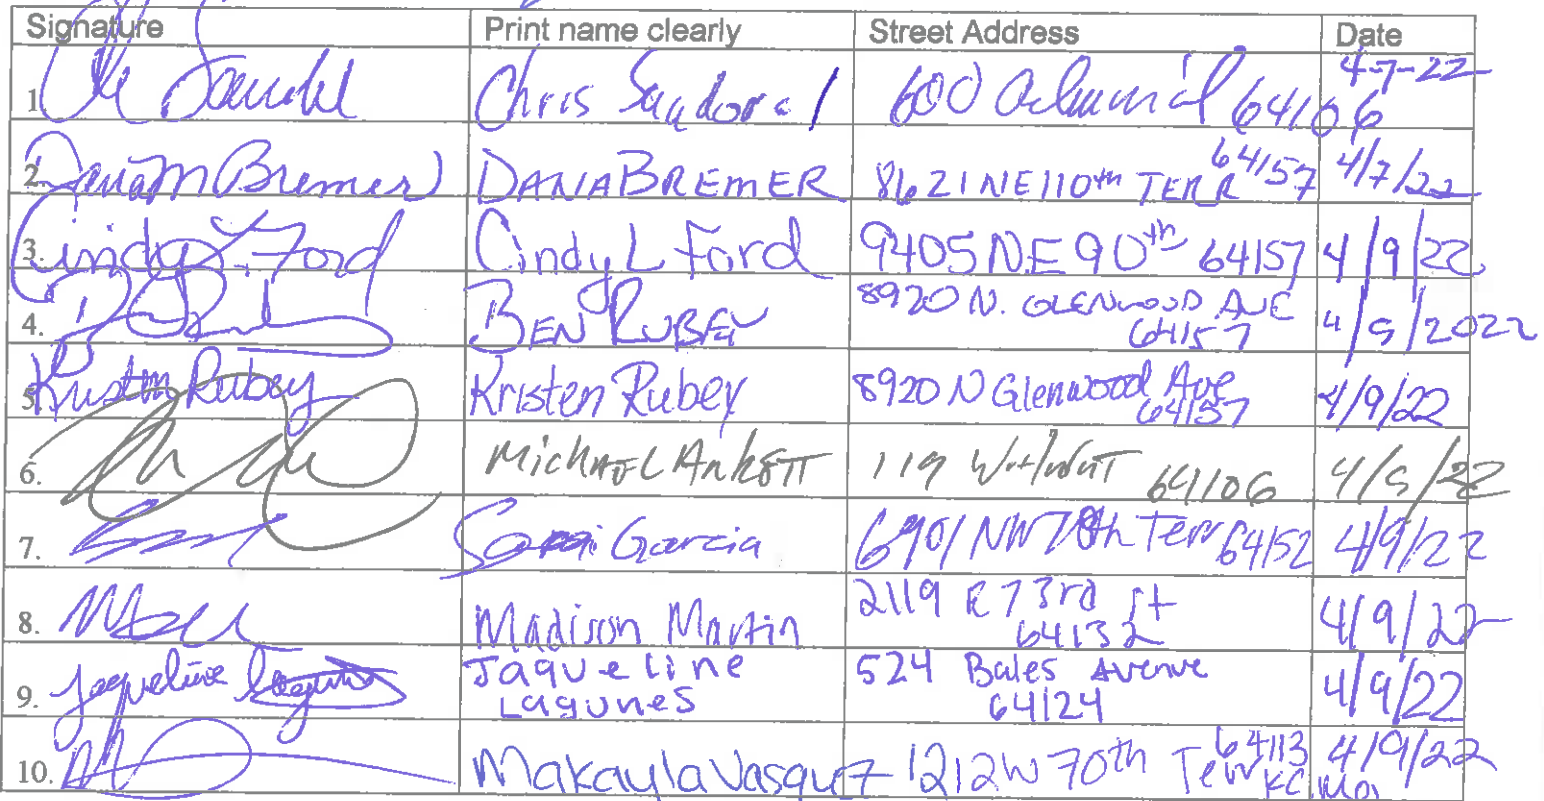 Signature Print name clearly Street Address Date
1. Chris Sandoval 600 Admiral 64106 4-7-22
2. Dania M Bremer DANIA BREMER 8621 NE 110th TERR 64157 4/7/22
3. Cindy L. Ford Cindy L Ford 9405 N.E 90th 64157 4/9/22
4. BEN RUBEY 8920 N. GLENWOOD AVE 4/9/2022
64157
5. Kristen Rubey Kristen Rubey 8920 N Glenwood Ave 4/9/22
64157
6. Michael 119 64106 4/9/22
7. Garcia 6901 NW 78th Terr 64152 4/9/22
8. Madison Martin 2119 E 73rd St 4/9/22
64132
9. Jaqueline Lagunes Jaqueline 524 Bales Avenue 4/9/22
Lagunes 64124
10. Makayla Vasquez 1212 W 70th Terr 64113 4/9/22
KC, Mo,